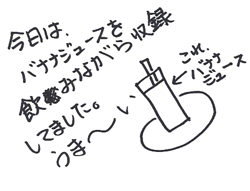 今日は、
バナナジュースを
飲みながら収録
してました。
うま〜い
これ、
バナナ
ジュース